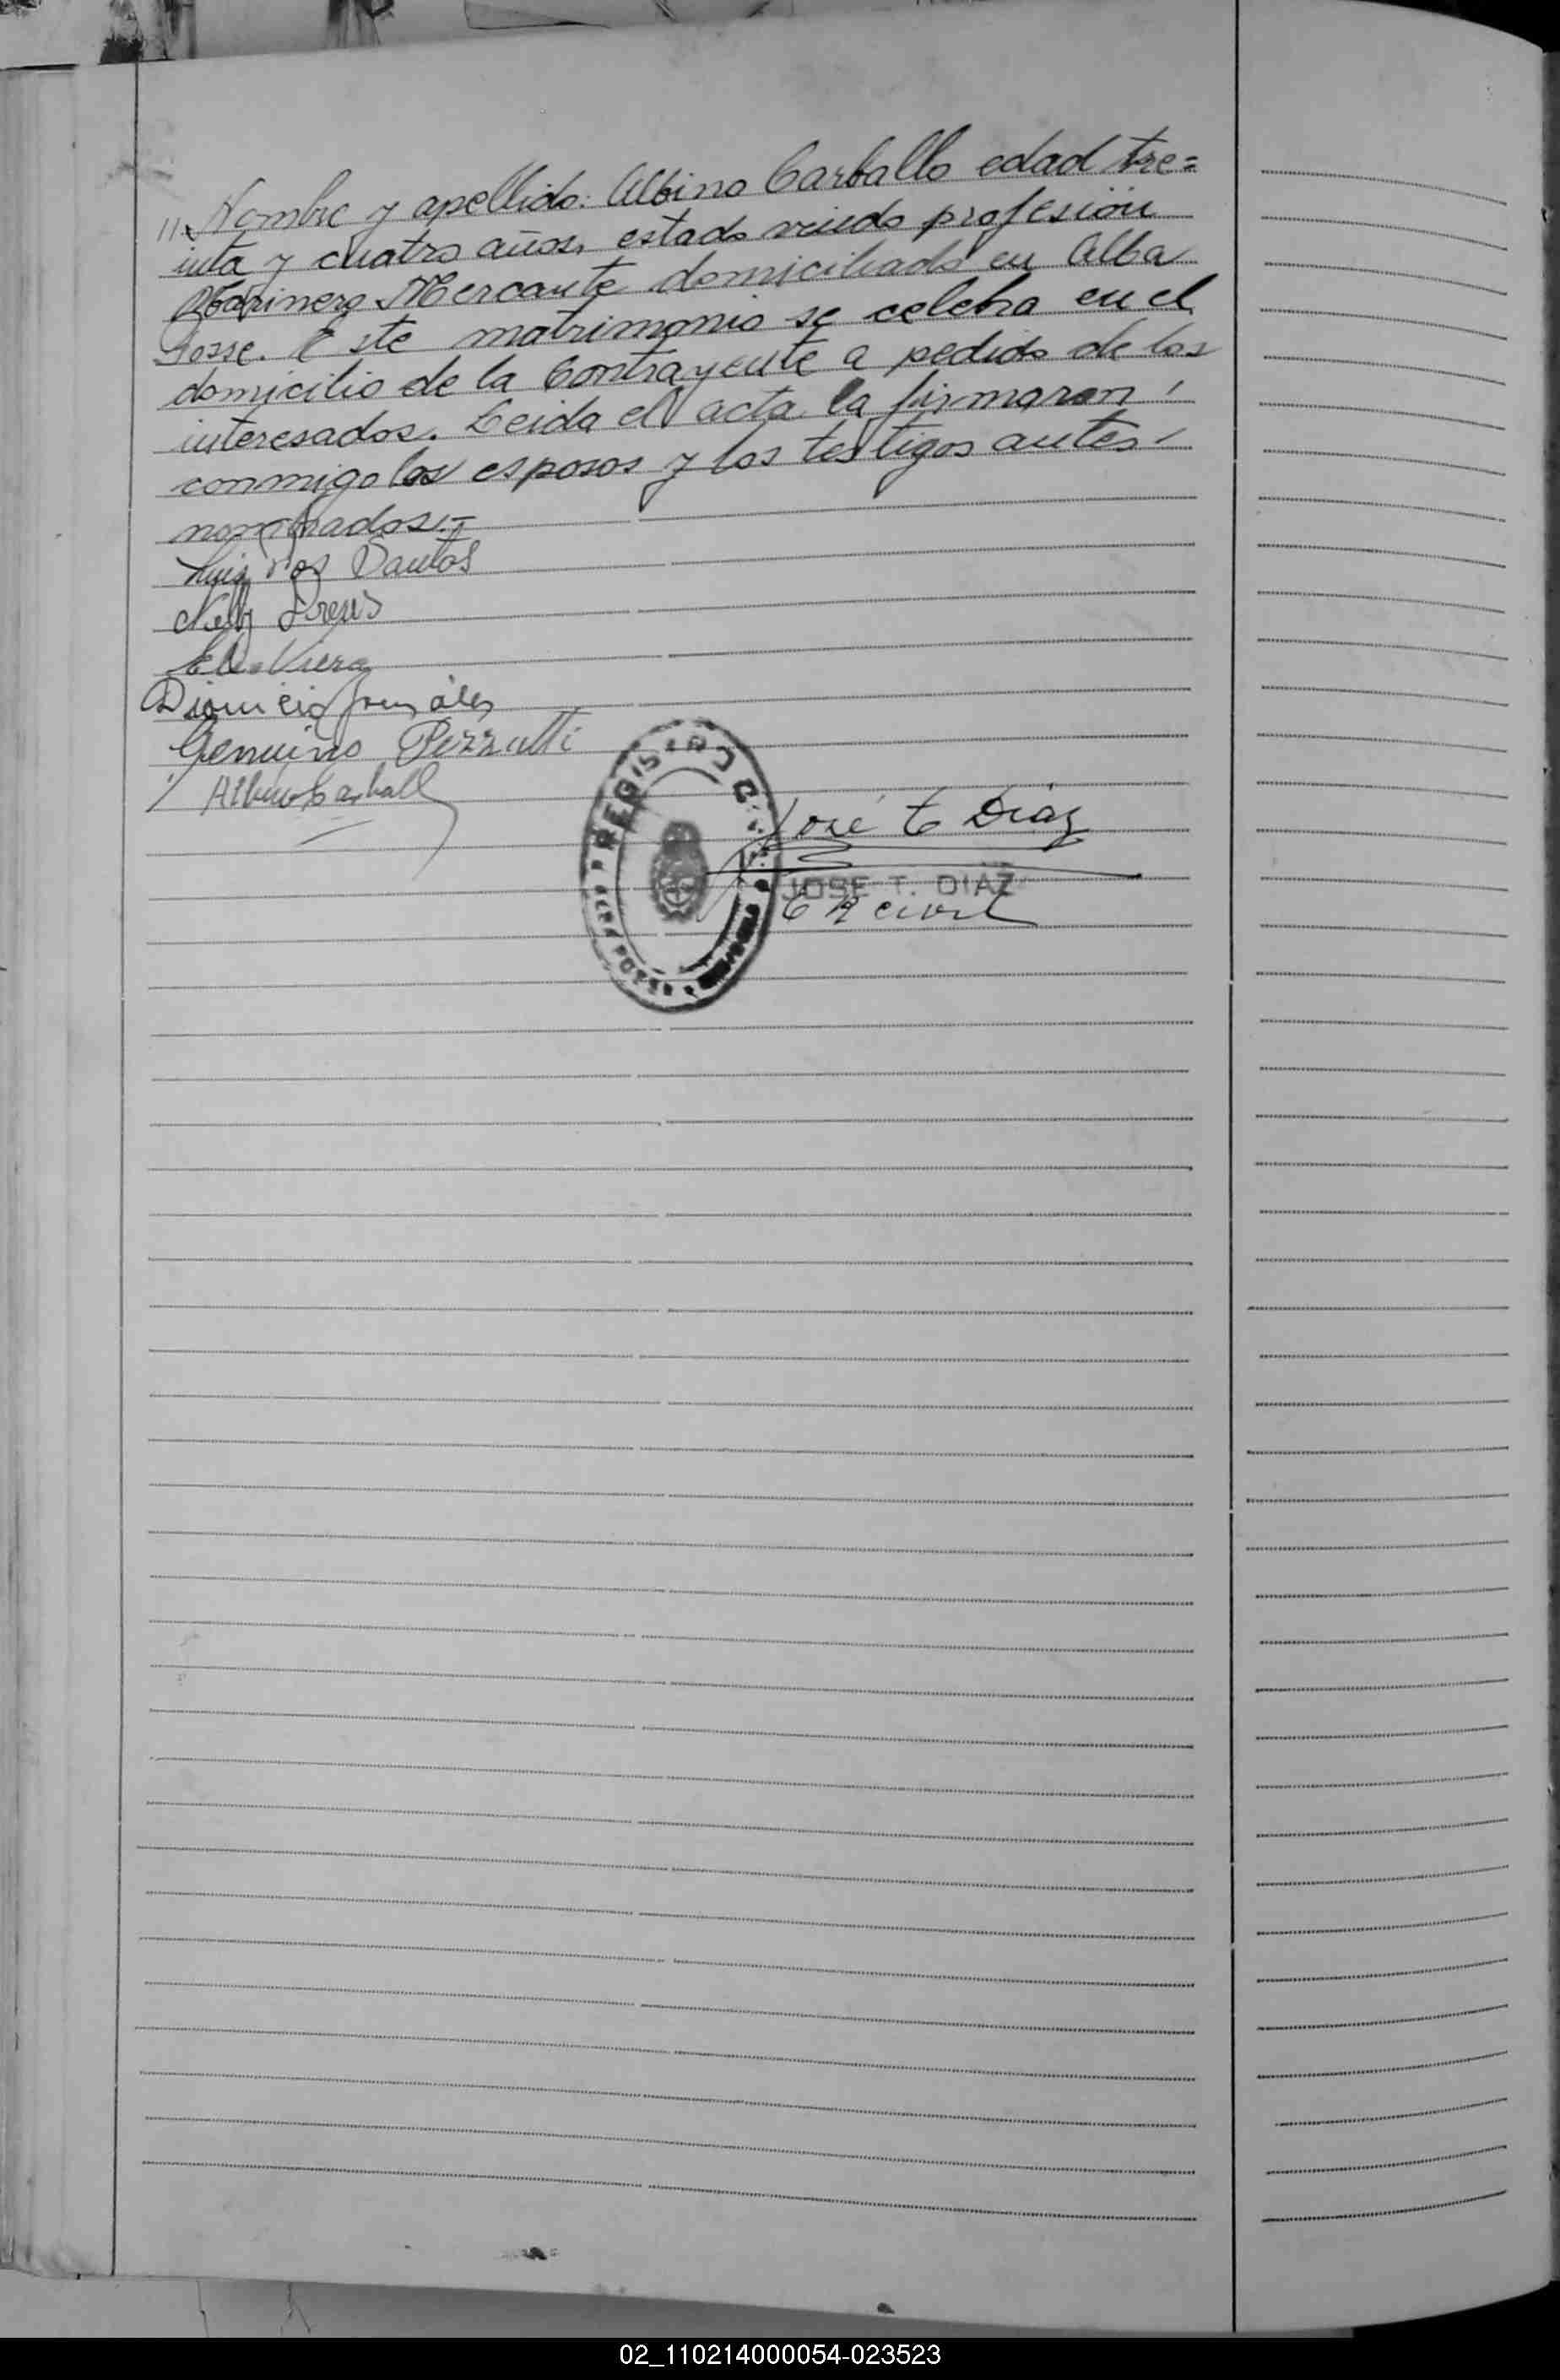 11. Nombre y apellido: Albino Carballo edad tre=
inta y cuatro años, estado viudo profesión
Marinero Mercante domiciliado en Alba
Posse. Este matrimonio se celebra en el
domicilio de la Contrayente a pedido de los
interesados. Leida el acta la firmaron
conmigo los esposos y los testigos antes
nombrados.-
Luiz dos Santos
Nelly
Viera
Dionicio Gonzáles
Genuino Pezzutti
Albino Carballo
REGISTRO C
ALBA POSSE
José T Diaz
JOSE T. DIAZ
E R Civil
02_110214000054-023523